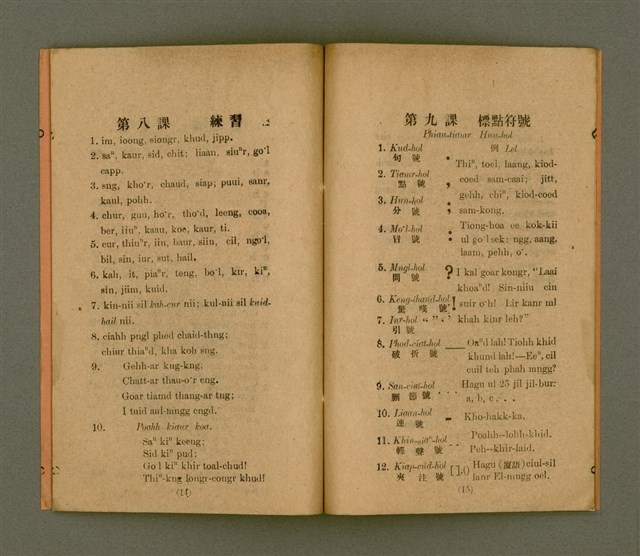 第八課 練習 上
1. im, ioong, siongr, khud, jipp.
2. saⁿ, kaur, sid, chit; liaan, siuⁿr, go'l
capp.
3. sng, kho'r, chaud, siap; puui, sanr,
kaul, pohh.
4. chur, guu, ho'r, tho'd, leeng, cooa,
ber, iiuⁿ, kaau, koe, kaur, ti.
5. cur, thiuⁿr, iin, baur, siiu, cil, ngo'l,
bil, sin, iur, sut, hail.
6. kah, it, piaⁿr, teng, bo'l, kir, kiⁿ,
sin, jiim, kuid.
7. kin-nii sil kah-cur nii; kul-nii sil kuid-
hail nii.
8. ciahh pngl phed chaid-thng;
chiur thiaⁿd, kha kob sng.
9. Gehh-ar kug-kng,
Chatt-ar thau-o'r eng.
Goar tiamd thang-ar tng;
I tuid aul-mngg engd.
10. Poahh kiaur koa.
Saⁿ kiⁿ keeng;
Sid kiⁿ pud;
Go'l kiⁿ khir toal-chud!
Thiⁿ-kng longr-congr khud!
(14)
第九課 標點符號
Phiau-tiamr Huu-hol
1. Kud-hol 例 Lel
句號 . Thiⁿ, toel, laang, kiod-
2. Tiamr-hol coed sam-caai; jitt,
點號 , gehh, chiⁿ, kiod-coed
3. Hun-hol sam-kong.
分號 ;
4. Mo'l-hol Tiong-hoa ee kok-kii
冒號 : ul go'l sek: ngg, aang,
laam, pehh, o'.
5. Mngl-hol ? I kal goar kongr, "Laai
問號 khoaⁿd! Sin-niiu cin
6. Keng-thand-hol ! suir o'h! Lir kanr ml
驚嘆號 khah kinr leh?"
7. Inr-hol " " ' '
引號
8. Phod-ciat-hol —— Oaⁿd lah! Tiohh khid
破折號 khund lah!—Eeⁿ, cil
cuil teh phah mngg?
9. San-ciat-hol ... Hagu ul 25 jil jil-bur:
刪節號 a, b, c . . .
10. Liaan-hol - Kho-hakk-ka.
連號
11. Khin-siaⁿ-hol -- Poahh--lohh-khid.
輕聲號 Peh--khir-laid.
12. Kiap-cud-hol [ ],( ) Hagu (廈語) ciul-sil
夾注號 lanr El-mngg oel.
(15)